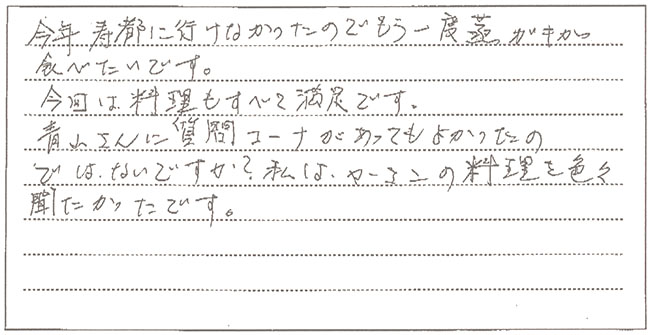 今年寿都に行けなかったのでもう一度蒸しがきが
食べたいです。
今回は料理もすべて満足です。
青山さんに質問コーナがあってもよかったの
ではないですか?私は、の料理を色々
聞たかったです。